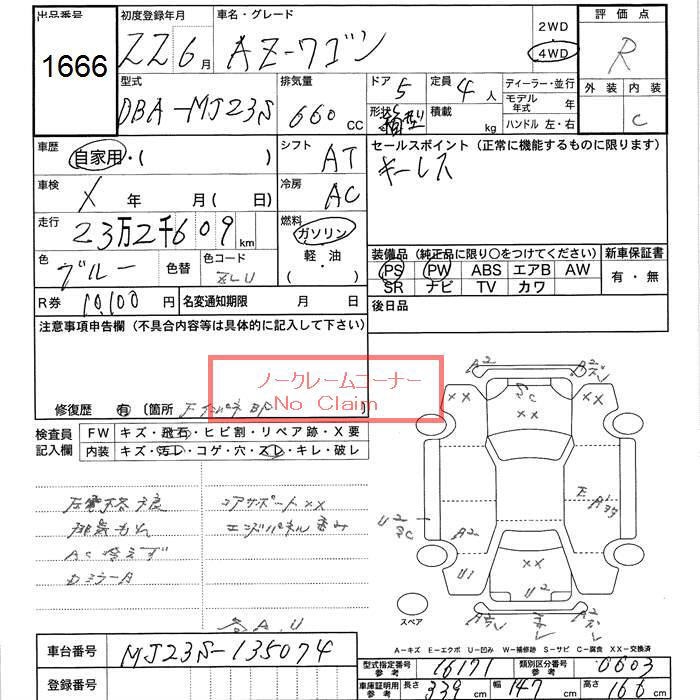 出品番号 初度登録年月 車名・グレード 2WD 4WD 評価点
1666 22 6月 AZ-ワゴン R
型式 排気量 ドア 5 定員 4人 ディーラー・並行 外装 内装
DBA-MJ23S 660cc 形状 箱型 積載 kg モデル年式 年 C
ハンドル 左・右
車歴 自家用・( ) シフト AT セールスポイント (正常に機能するものに限ります)
キーレス
車検 X 年 月 ( 日) 冷房 AC
走行 23万2千609km 燃料 ガソリン 軽油 ( ・ )
装備品 (純正品に限り○をつけてください) 新車保証書
色 ブルー 色替 色コード PS PW ABS エアB AW 有・無
SR ナビ TV カワ
R券 10,100円 名変通知期限 月 日 後日品
注意事項申告欄 (不具合内容等は具体的に記入して下さい)
ノークレームコーナー
No Claim
修復歴 有 (箇所
検査員記入欄 FW キズ・飛石・ヒビ割・リペア跡・X要
内装 キズ・汚レ・コゲ・穴・スレ・キレ・破レ
コアサポートXX
エンドパネル歪み
AC冷えず
各A、U
A2
XX
C
XX
XX
E
A2
U1
XX
U2
スペア
A-キズ E-エクボ U-凹み W-補修跡 S-サビ C-腐食 XX-交換済
車台番号 MJ23S-135074 型式指定番号 参考 16171 類別区分番号 参考 0603
登録番号 車庫証明用 参考 長さ 339cm 幅 147cm 高さ 166cm